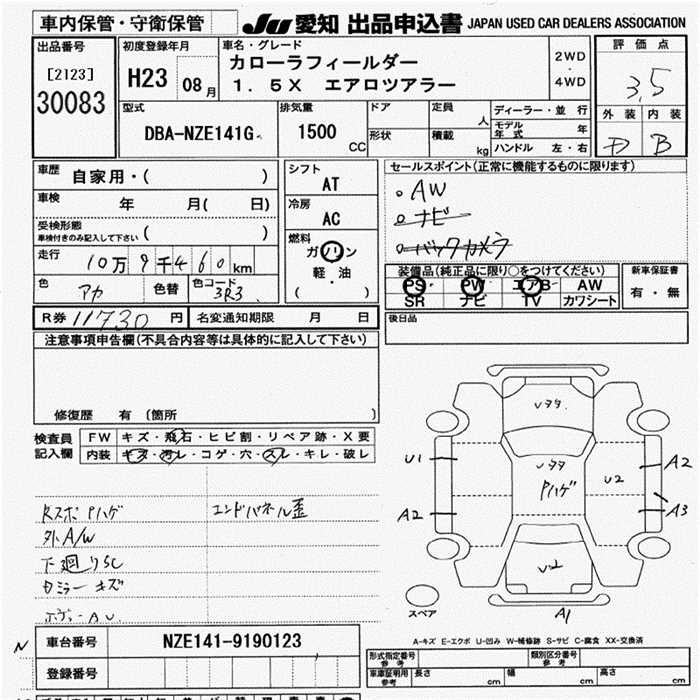 車内保管・守衛保管
JU 愛知 出品申込書 JAPAN USED CAR DEALERS ASSOCIATION
出品番号
[2123]
30083
初度登録年月
H23 08月
車名・グレード
カローラフィールダー
1．5X エアロツアラー
2WD
・
4WD
評価点
3.5
外装 内装
D B
型式
DBA-NZE141G
排気量
1500
CC
ドア
形状
定員
人
積載
kg
ディーラー・並行
モデル年式 年
ハンドル 左・右
車歴
自家用・( )
車検
年 月( 日)
受検形態
車検付きのみ記入して下さい ( )
走行
10万9千460km
色
アカ
色替
色コード
3R3
シフト
AT
冷房
AC
燃料
ガソリン
軽・油
( )
セールスポイント(正常に機能するものに限ります)
。AW
。ナビ
。バックカメラ
装備品(純正品に限り○をつけてください)
PS PW エアB AW
SR ナビ TV カワシート
新車保証書
有・無
R券 11730 円
名変通知期限 月 日
後日品
注意事項申告欄(不具合内容等は具体的に記入して下さい)
修復歴 有 〔箇所 〕
検査員
記入欄
FW キズ・飛石・ヒビ割・リペア跡・X要
内装 キズ・汚レ・コゲ・穴・スレ・キレ・破レ
Rスポ Pハゲ
エンドパネル歪
外A/W
下廻りSC
キズ
スペア
Uタタ
Uタタ
Pハゲ
U1
A2
U2
A2
A3
U2
A1
A-キズ E-エクボ U-凹み W-補修跡 S-サビ C-腐食 XX-交換済
N
車台番号 NZE141-9190123
登録番号
形式指定番号
参考
類別区分番号
参考
車庫証明用
参考
長さ cm 幅 cm 高さ cm